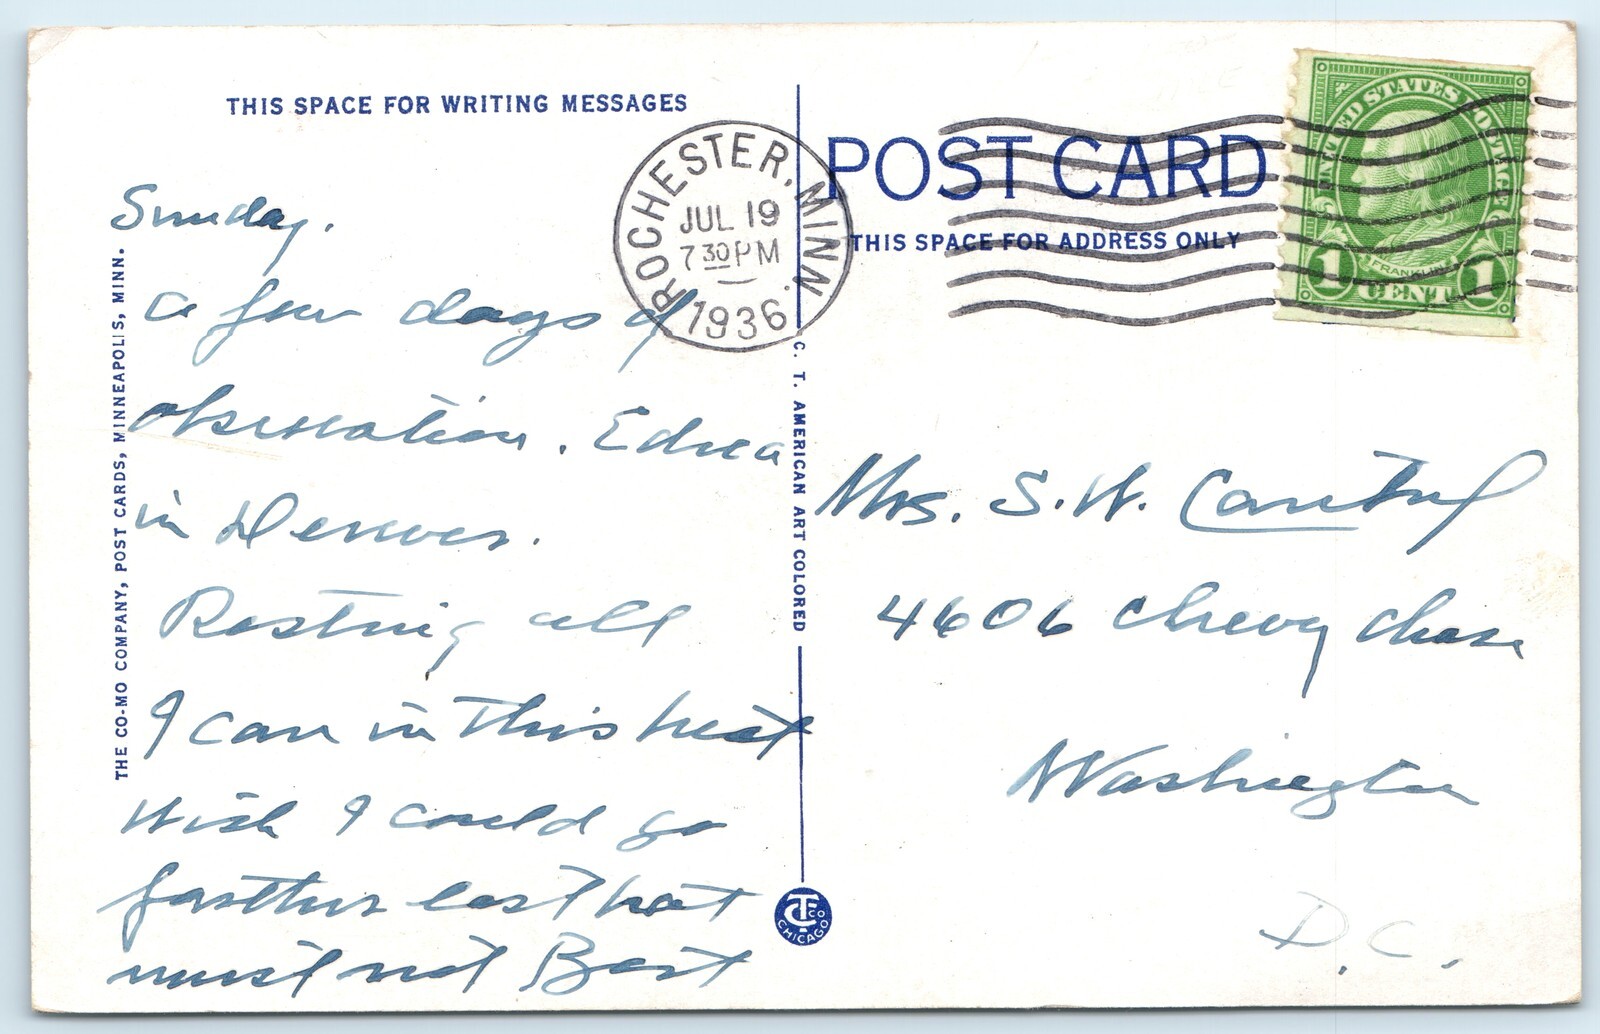 THIS SPACE FOR WRITING MESSAGES
Sunday.
a few days of
observation. Edna
in Denver.
Resting all
I can in this heat
Wish I could go
farther east but
must not Best
THE CO-MO COMPANY, POST CARDS, MINNEAPOLIS, MINN.
C. T. AMERICAN ART COLORED
ROCHESTER, MINN.
JUL 19
7 30 PM
1936
POST CARD
THIS SPACE FOR ADDRESS ONLY
UNITED STATES POSTAGE
FRANKLIN
1 CENT 1
Mrs. S. W. Cantrel
4606 Chevy Chase
Washington
D.C.
CT CO
CHICAGO